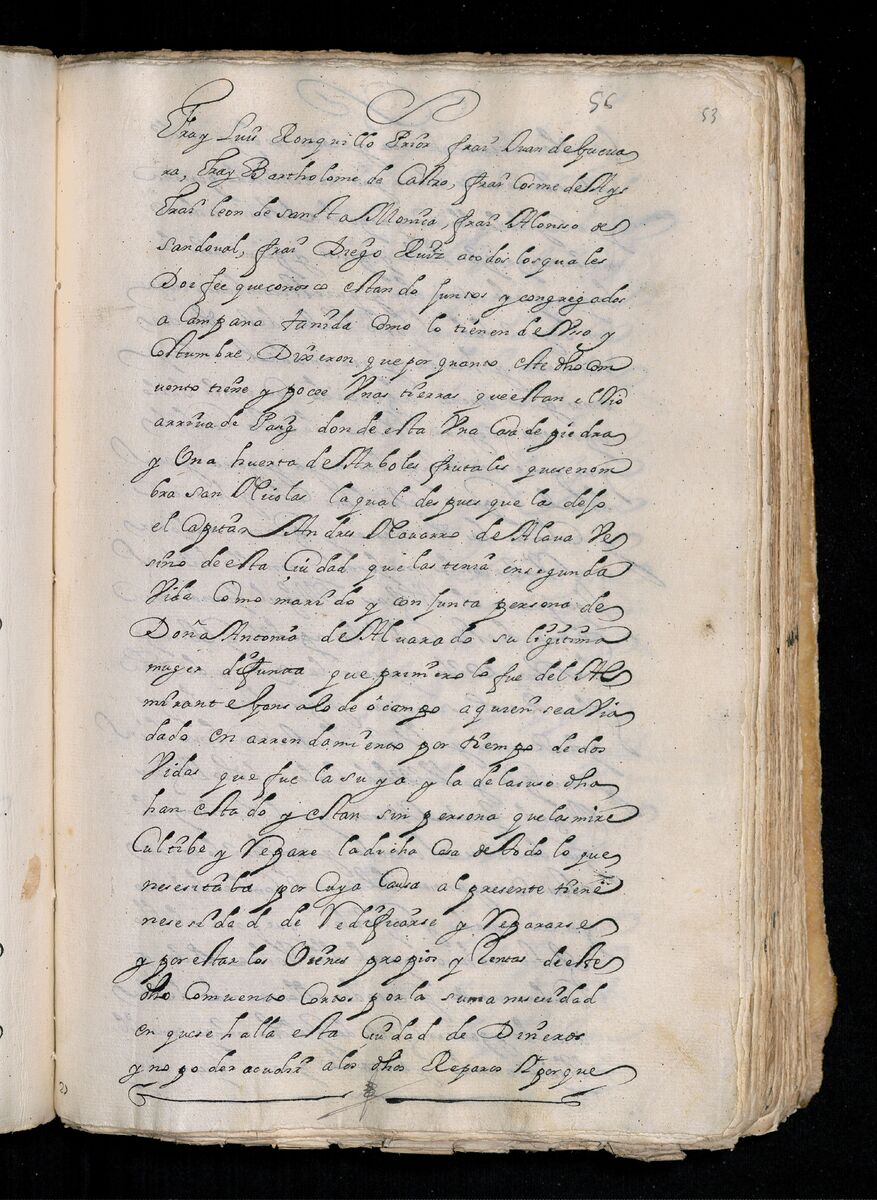 56
53
Fray Luis Ronquillo Prior frai Juan de gueua
ra, Fray Bartholome de Castro, frai Cosme de
Frai leon de sancta Monica, frai Alonso de
Sandoual, frai Diego Ruiz a todos los quales
Doi fee que conosco estando juntos y congregados
a campana tañida como lo tienen de Vso y
costumbre, Dixeron que por quanto este dho com
uento tiene y pocee Vnas tierras que estan el Rio
arriua de Pasig donde esta Vna Casa de piedra
y Vna huerta de Arboles frutales que se nom
bra San Nicolas la qual despues que las dejo
el Capitan Andres Nauarro de Alaua Ve
sino de esta Ciudad que las tenia en segunda
Vida como marido y conjunta persona de
Doña Antonia de Aluarado su ligitima
muger difunta que primero lo fue del Al
mirante gonsalo de ocampo a quien se auia
dado en arrendamiento por tiempo de dos
Vidas que fue la suya y la de la suso dha
han estado y estan sin persona que las mire
Cultibe y Repare la dicha Casa de todo lo que
nesesitaba por Cuya Causa al presente tiene
nesesidad de Redificarse y Repararse
y por estar los Vienes propios y Rentas de este
dho Comuento Cortos por la suma nesesidad
en que se halla esta Ciudad de Dineros
y no poder acudir a los dhos Reparos porque